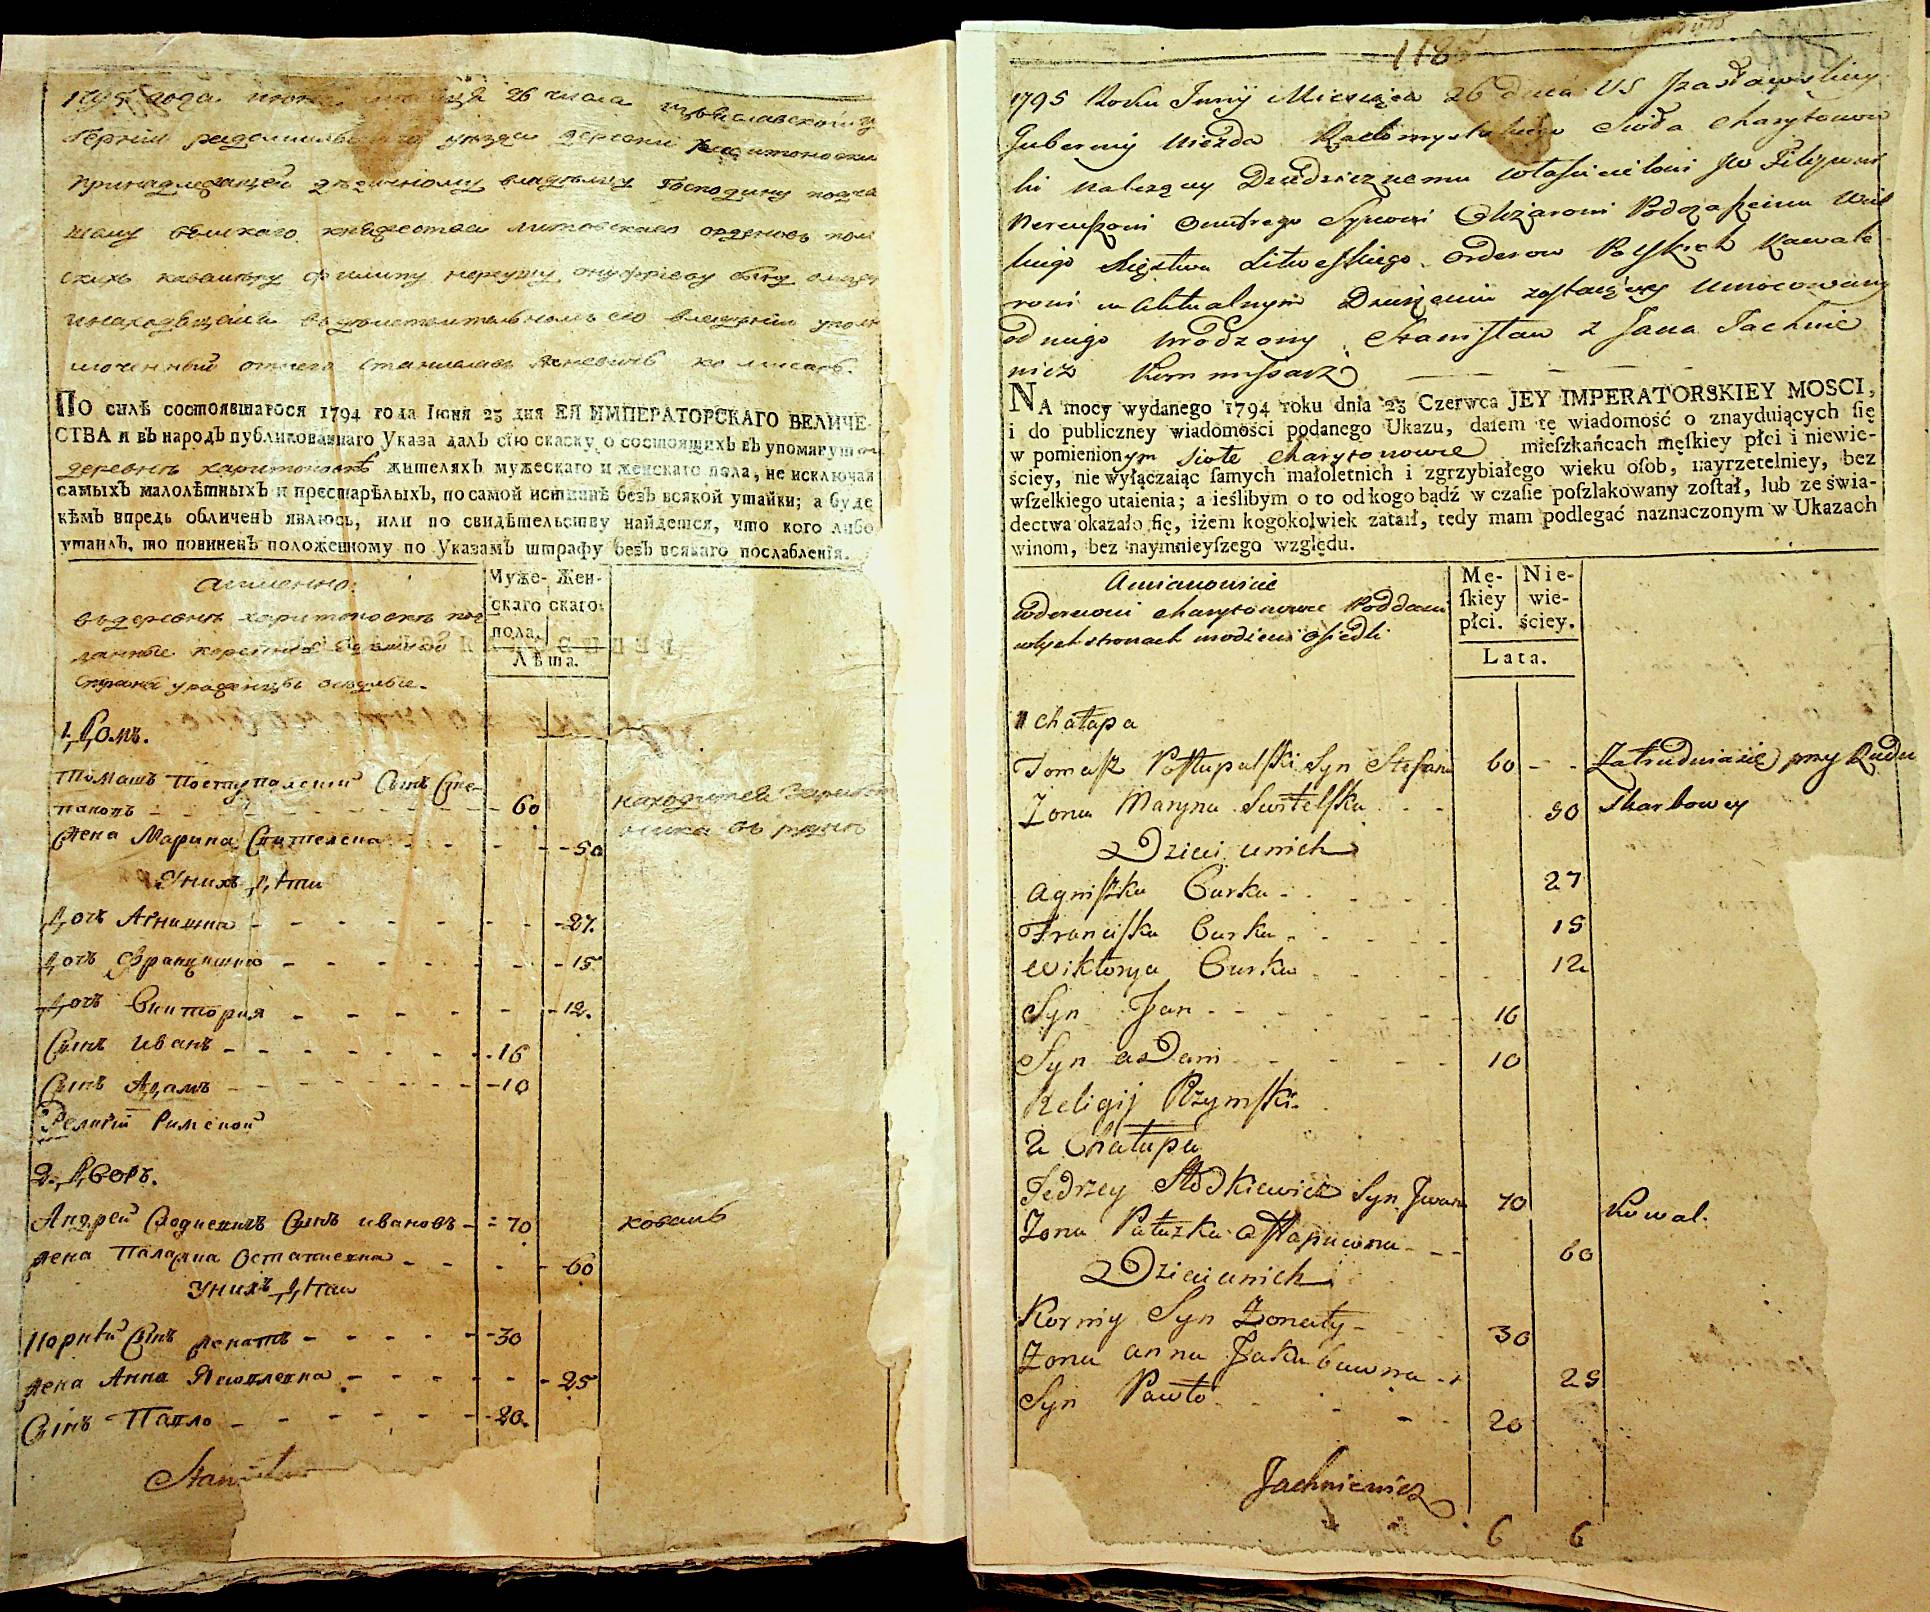 1795 года июня месяца 26 числа Изъяславской гу
бернии радомыльского уезда деревни Харитоновки
принадлежащей дѣдичному владѣльцу Господину подча
шему великаго княжества литовскаго орденовъ пол
скихъ кавалеру Филипу нереушу онуфриеву сыну олизару
инаходящейся въдѣйствительномъ его владѣнии уполно
моченный отнего Станиславъ Яхневичъ комисаръ.
ПО силѣ состоявшагося 1794 года Іюня 23 дня ЕЯ ИМПЕРАТОРСКАГО ВЕЛИЧЕ-
СТВА и въ народъ публикованнаго Указа далъ сію скаску о состоящихъ въ упомянутой
деревнѣ харитоновкѣ жителяхъ мужескаго и женскаго пола, не исключая
самыхъ малолѣтныхъ и престарѣлыхъ, по самой истиннѣ безъ всякой утайки; а буде
кѣмъ впредь обличенъ явлюсь, или по свидѣтельству найдется, что кого либо
утаилъ, то повиненъ положенному по Указамъ штрафу безъ всякаго послабленія.
аимянно:
въдеревнѣ харитоновкѣ под
данные
страны уроденцы оседлые.
Муже- Жен-
скаго скаго
пола.
Лѣта.
1. Домъ.
Томашъ Поступолский Сынъ Сте-
пановъ - - - 60 находится
жена Марина - - - 50
Унихъ дѣти
Дочь Агнишка - - - 27.
Дочь Францишка - - - 15
Дочь Виктория - - - 12.
Сынъ Иванъ - - - 16
Сынъ Адамъ - - - 10
Религии Римской
2. Дворъ.
Андрей Слодкевичъ Сынъ ивановъ - 70 коваль
жена Палажка Остаповна - - - 60
Унихъ дѣти
Корнѣй Сынъ женатъ - - - 30
жена Анна Якововна - - - 25
Сынъ Павло - - - 20.
Stanisław
118
1795 Roku Junij Miesiąca 26 dnia US Izasławskiey
Guberniy Uiezda Radomyslskiego Sioła Charytonow
ki należący Dziedzicznemu właścicielowi JW Filipowi
Nereuszowi Onufrego Synowi Olizarowi Podczaszemu Wiel
kiego Xięstwa Litewskiego Orderow Polskich Kawale
rowi w Aktualnym Dzierżeniu zostaiący Umocowany
od niego urodzony Stanisław z Jana Jachnie
wicz Kommissarz
NA mocy wydanego 1794 roku dnia 23 Czerwca JEY IMPERATORSKIEY MOSCI,
i do publiczney wiadomości podanego Ukazu, daiem tę wiadomość o znayduiących się
w pomienionym siole Charytonowce mieszkańcach męskiey płci i niewie-
ściey, nie wyłączaiąc samych małoletnich i zgrzybiałego wieku osob, nayrzetelniey, bez
wszelkiego utaienia; a ieślibym o to od kogo bądź w czasie poszlakowany został, lub ze świa-
dectwa okazało się, iżem kogokolwiek zataił, tedy mam podlegać naznaczonym w Ukazach
winom, bez naymnieyszego względu.
Amianowicie
wderewni Charytonowce Poddani
wtych stronach urodzeni Osiedli
Mę-
skiey
płci.
Nie-
wie-
ściey.
Lata.
1 chałupa
Tomasz Postupalski Syn Stefana 60 - - Zatrudnia się przy Rudni
Żona Maryna - - 50 Skarbowey
Dzieci unich
Agniszka Curka - - 27
Franciszka Curka - - 15
Wiktorya Curka - - 12
Syn Jan - - - 16
Syn adam - - - 10
Religij Rzymski.
2 Chałupa
Jędrzey Słodkiewicz Syn Jwana 70 Kowal.
Żona Pałazka Ostapuwna - - 60
Dzieci unich
Korniy Syn Żonaty - 30
Żona anna Jakubuwna - 25
Syn Pawło - - 20
Jachniewicz
6 6